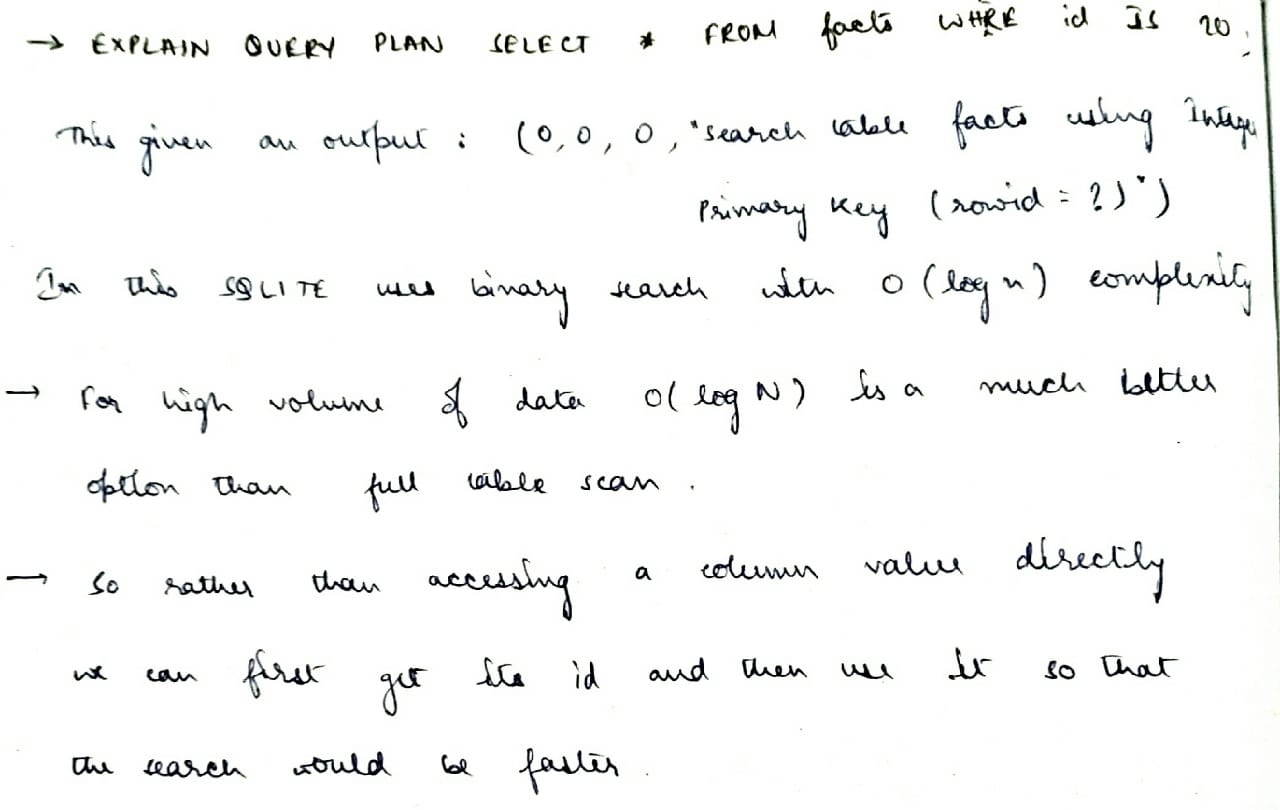 → EXPLAIN QUERY PLAN SELECT * FROM facts WHRE id IS 20;
This given an output : (0, 0, 0, "search table facts using Integer
Primary Key (rowid = ?)")
In this SQLITE uses binary search with O(log n) complexity
→ For high volume of data O(log N) is a much better
option than full table scan.
→ So rather than accessing a column value directly
we can first get its id and then use it so that
the search would be faster.